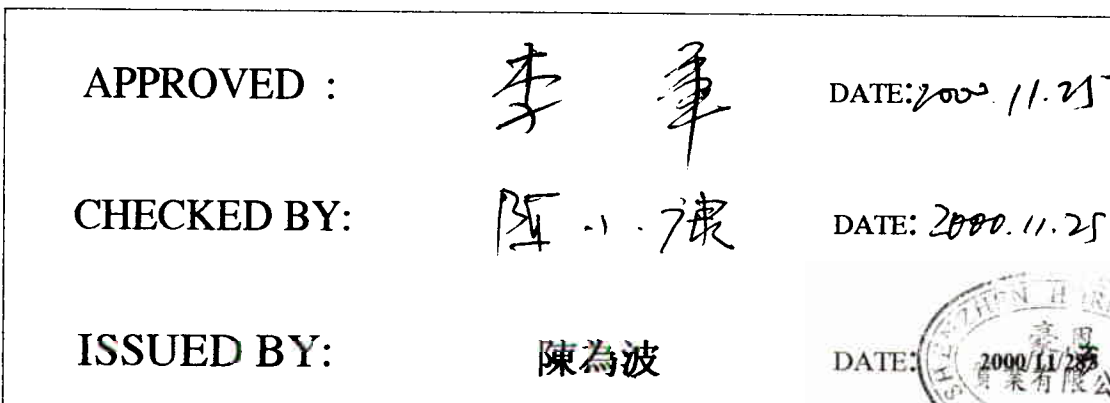 APPROVED : 李 軍 DATE:2000.11.25
CHECKED BY: 陈小康 DATE: 2000.11.25
ISSUED BY: 陳為波 DATE: 2000/11/28
SHENZHEN H
業有限公